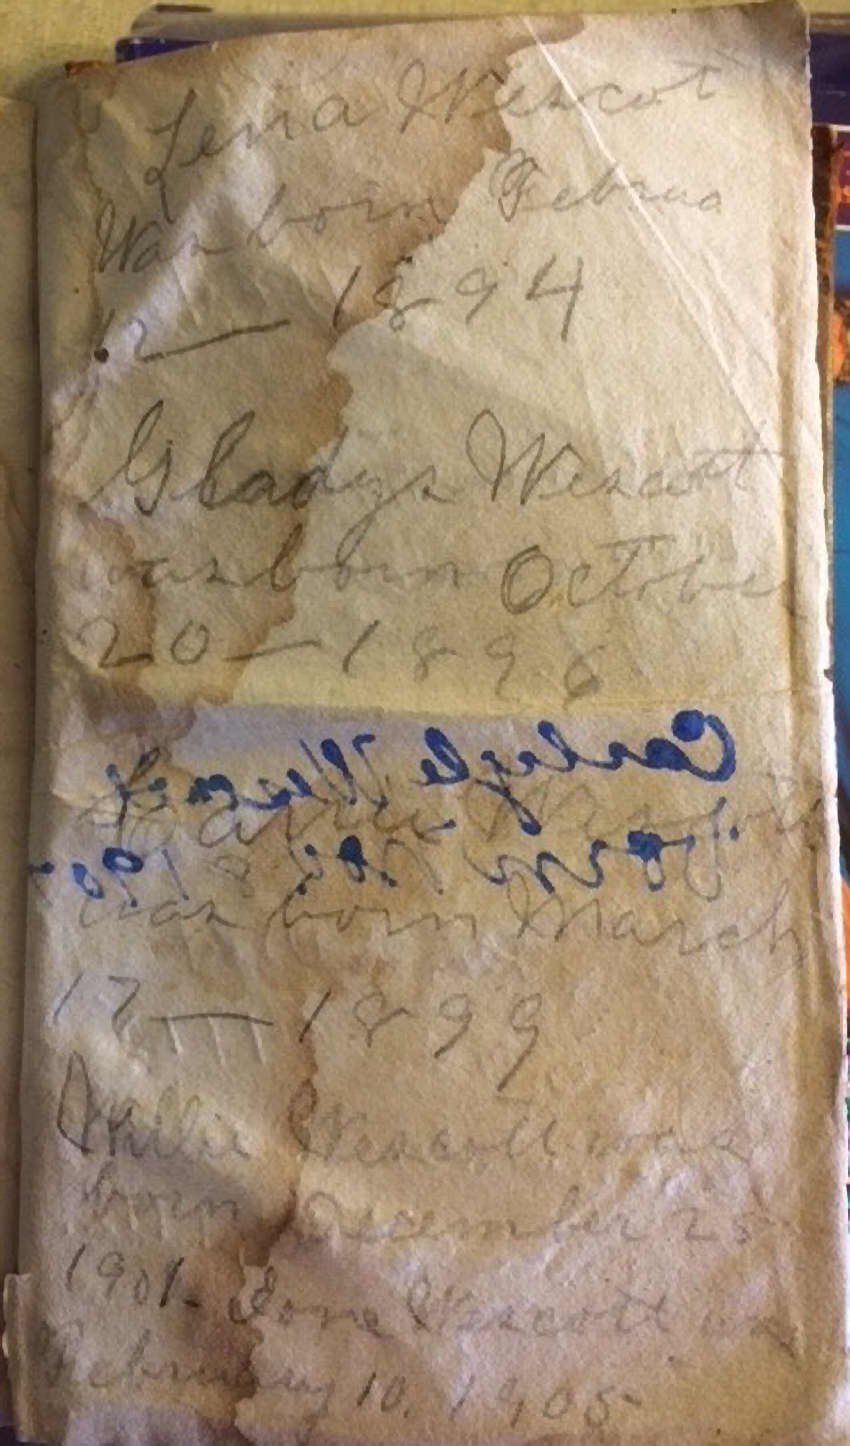 Lena Wescot
Was born Februa
12 — 1894
Gladys Wescott
was born October
20 — 1896
Carlyle Wescott
born 190
was born March
17 — 1899
Willie Wescott was
born December 25
1901. Ione Wescott was
February 10. 1905